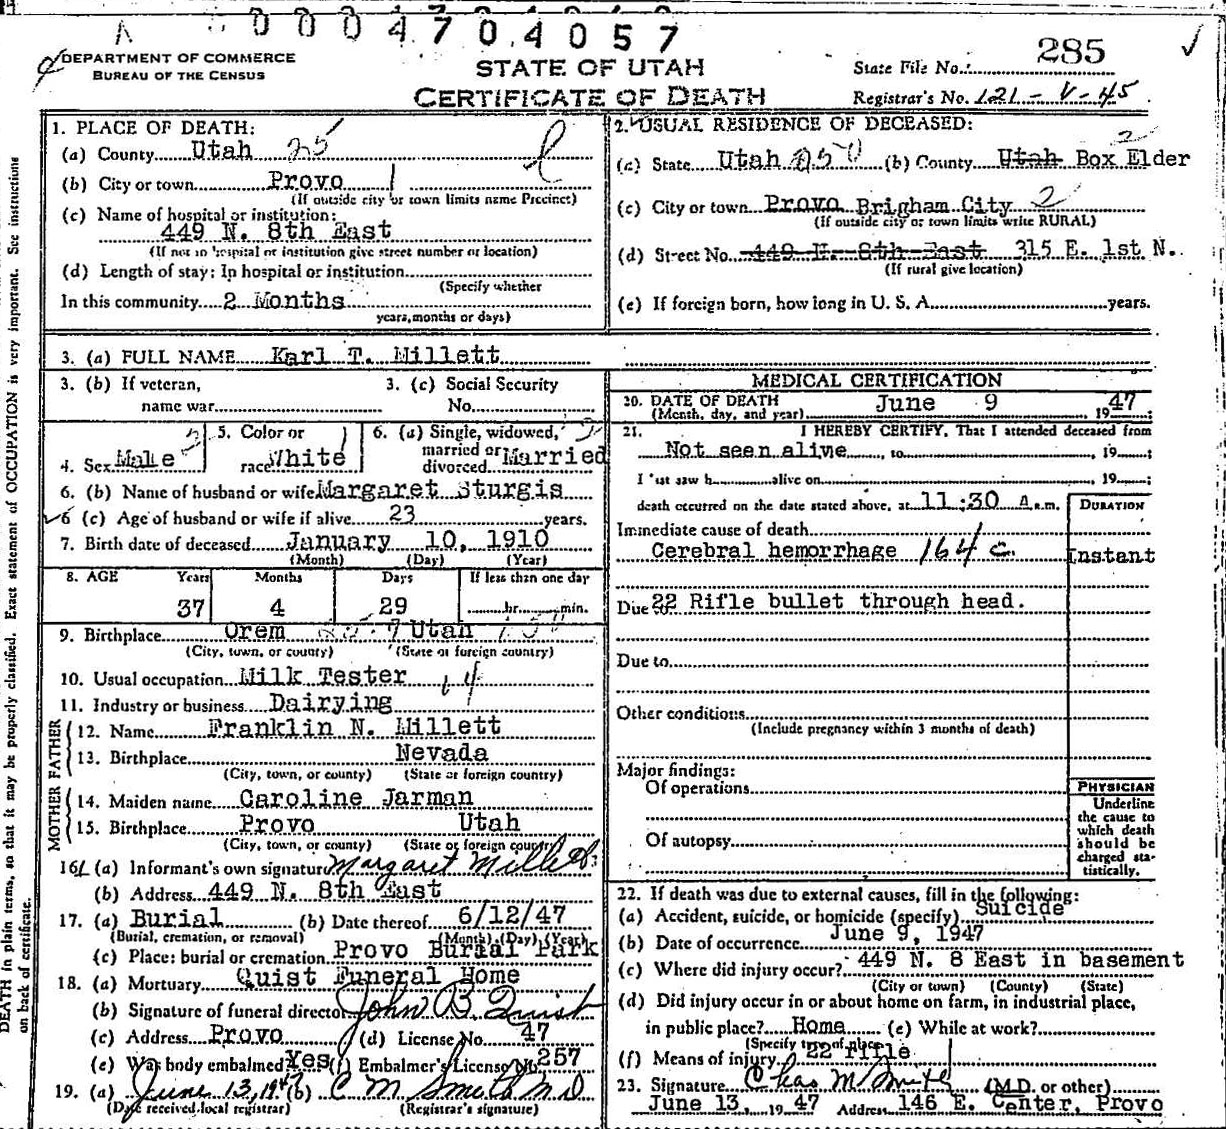 0004704057
DEPARTMENT OF COMMERCE
BUREAU OF THE CENSUS
STATE OF UTAH
CERTIFICATE OF DEATH
State File No. 285
Registrar's No. 121-V-45
DEATH in plain terms, so that it may be properly classified. Exact statement of OCCUPATION is very important. See instructions on back of certificate.
1. PLACE OF DEATH:
(a) County Utah 25
(b) City or town Provo 1
(If outside city or town limits name Precinct)
(c) Name of hospital or institution:
449 N. 8th East
(If not in hospital or institution give street number or location)
(d) Length of stay: In hospital or institution
(Specify whether
In this community 2 Months
years, months or days)
2. USUAL RESIDENCE OF DECEASED:
(a) State Utah (b) County Utah Box Elder 2
(c) City or town Provo Brigham City 2
(If outside city or town limits write RURAL)
(d) Street No. 449 N. 8th East 315 E. 1st N.
(If rural give location)
(e) If foreign born, how long in U. S. A. years.
3. (a) FULL NAME Karl T. Millett
3. (b) If veteran, name war
3. (c) Social Security No.
4. Sex Male 2
5. Color or race White 1
6. (a) Single, widowed, married or divorced Married 2
6. (b) Name of husband or wife Margaret Sturgis
6 (c) Age of husband or wife if alive 23 years.
7. Birth date of deceased January 10, 1910
(Month) (Day) (Year)
8. AGE Years Months Days If less than one day
37 4 29 hr. min.
9. Birthplace Orem Utah
(City, town, or county) (State or foreign country)
10. Usual occupation Milk Tester 14
11. Industry or business Dairying
FATHER
12. Name Franklin N. Millett
13. Birthplace Nevada
(City, town, or county) (State or foreign country)
MOTHER
14. Maiden name Caroline Jarman
15. Birthplace Provo Utah
(City, town, or county) (State or foreign country)
16. (a) Informant's own signature Margaret Millett
(b) Address 449 N. 8th East
17. (a) Burial (b) Date thereof 6/12/47
(Burial, cremation, or removal) (Month) (Day) (Year)
(c) Place: burial or cremation Provo Burial Park
18. (a) Mortuary Quist Funeral Home
(b) Signature of funeral director John B. Quist
(c) Address Provo (d) License No. 47
(e) Was body embalmed? Yes (f) Embalmer's License No. 257
19. (a) June 13, 1947 (b) C M Smith M D
(Date received local registrar) (Registrar's signature)
MEDICAL CERTIFICATION
20. DATE OF DEATH June 9 1947;
(Month, day, and year)
21. I HEREBY CERTIFY, That I attended deceased from
Not seen alive, to 19 ;
I last saw h alive on 19 ;
death occurred on the date stated above, at 11:30 A.m.
DURATION
Immediate cause of death
Cerebral hemorrhage 164 c. Instant
Due 22 Rifle bullet through head.
Due to
Other conditions
(Include pregnancy within 3 months of death)
Major findings:
Of operations
Of autopsy
PHYSICIAN
Underline
the cause to
which death
should be
charged sta-
tistically.
22. If death was due to external causes, fill in the following:
(a) Accident, suicide, or homicide (specify) Suicide
(b) Date of occurrence June 9, 1947
(c) Where did injury occur? 449 N. 8 East in basement
(City or town) (County) (State)
(d) Did injury occur in or about home on farm, in industrial place,
in public place? Home (e) While at work?
(Specify type of place)
(f) Means of injury 22 rifle
23. Signature Chas M Smith (M.D. or other)
June 13, 1947 Address 146 E. Center, Provo